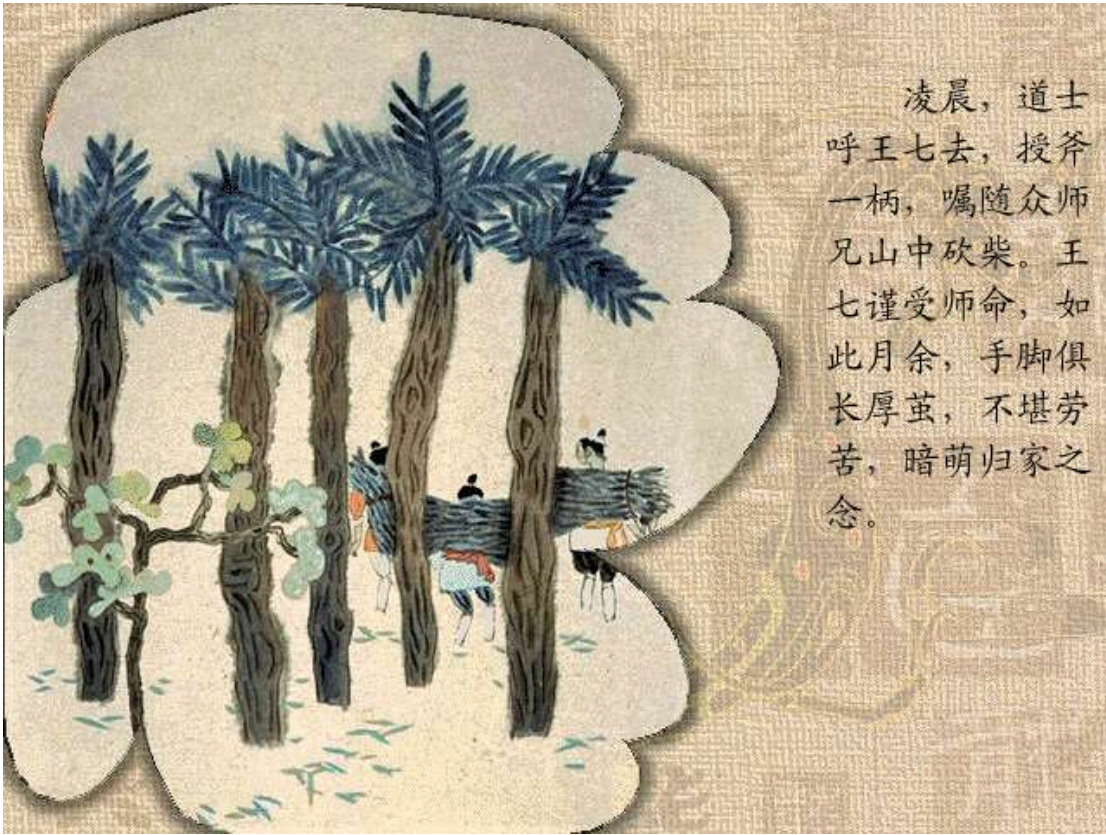 凌晨，道士
呼王七去，授斧
一柄，嘱随众师
兄山中砍柴。王
七谨受师命，如
此月余，手脚俱
长厚茧，不堪劳
苦，暗萌归家之
念。